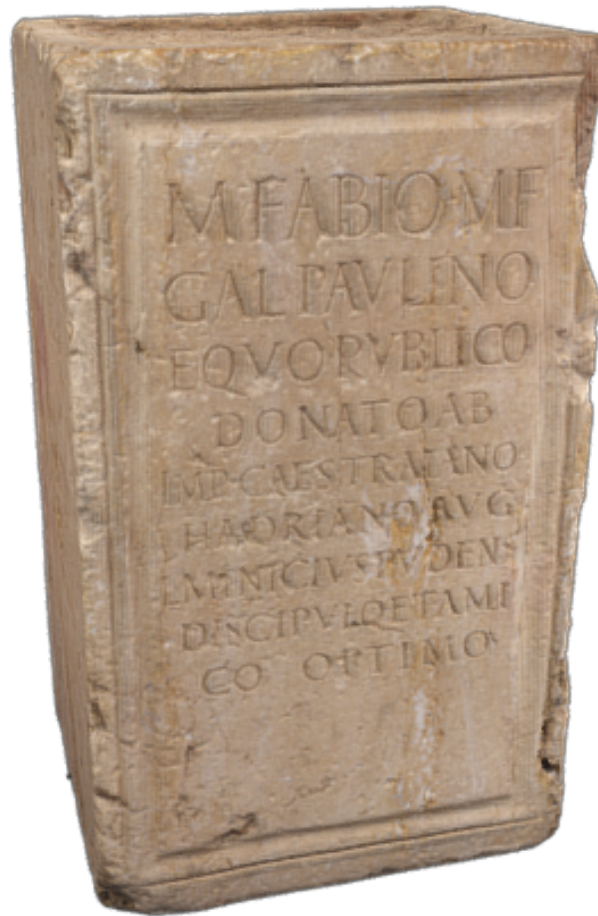 M·FABIO·M·F
GAL·PAVLINO
EQVO·PVBLICO
DONATO AB
IMP·CAES·TRAIANO
HADRIANO AVG
L·MINICIVS·PVDENS
DISCIPVLO ET AMI
CO OPTIMO